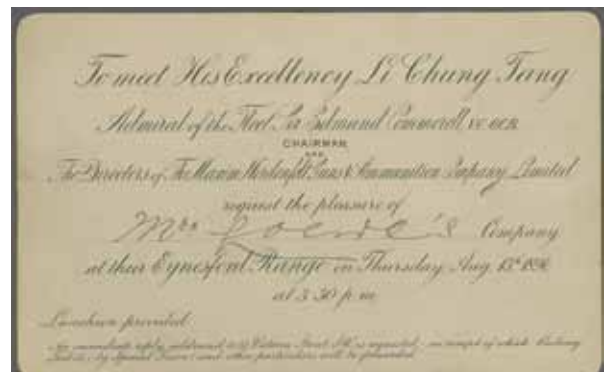 To meet His Excellency Li Chung Tang
Admiral of the Fleet Sir Edmund Commerell, VC. GCB.
CHAIRMAN
AND
The Directors of The Maxim Nordenfelt Guns & Ammunition Company Limited
request the pleasure of
Mrs Company
at their Eynesford Range on Thursday Aug. 13th 1896
at 3.30 p.m
Luncheon provided
An immediate reply, addressed to Victoria Street S.W. is requested, on receipt of which Railway
Tickets (by Special Train) and other particulars will be forwarded